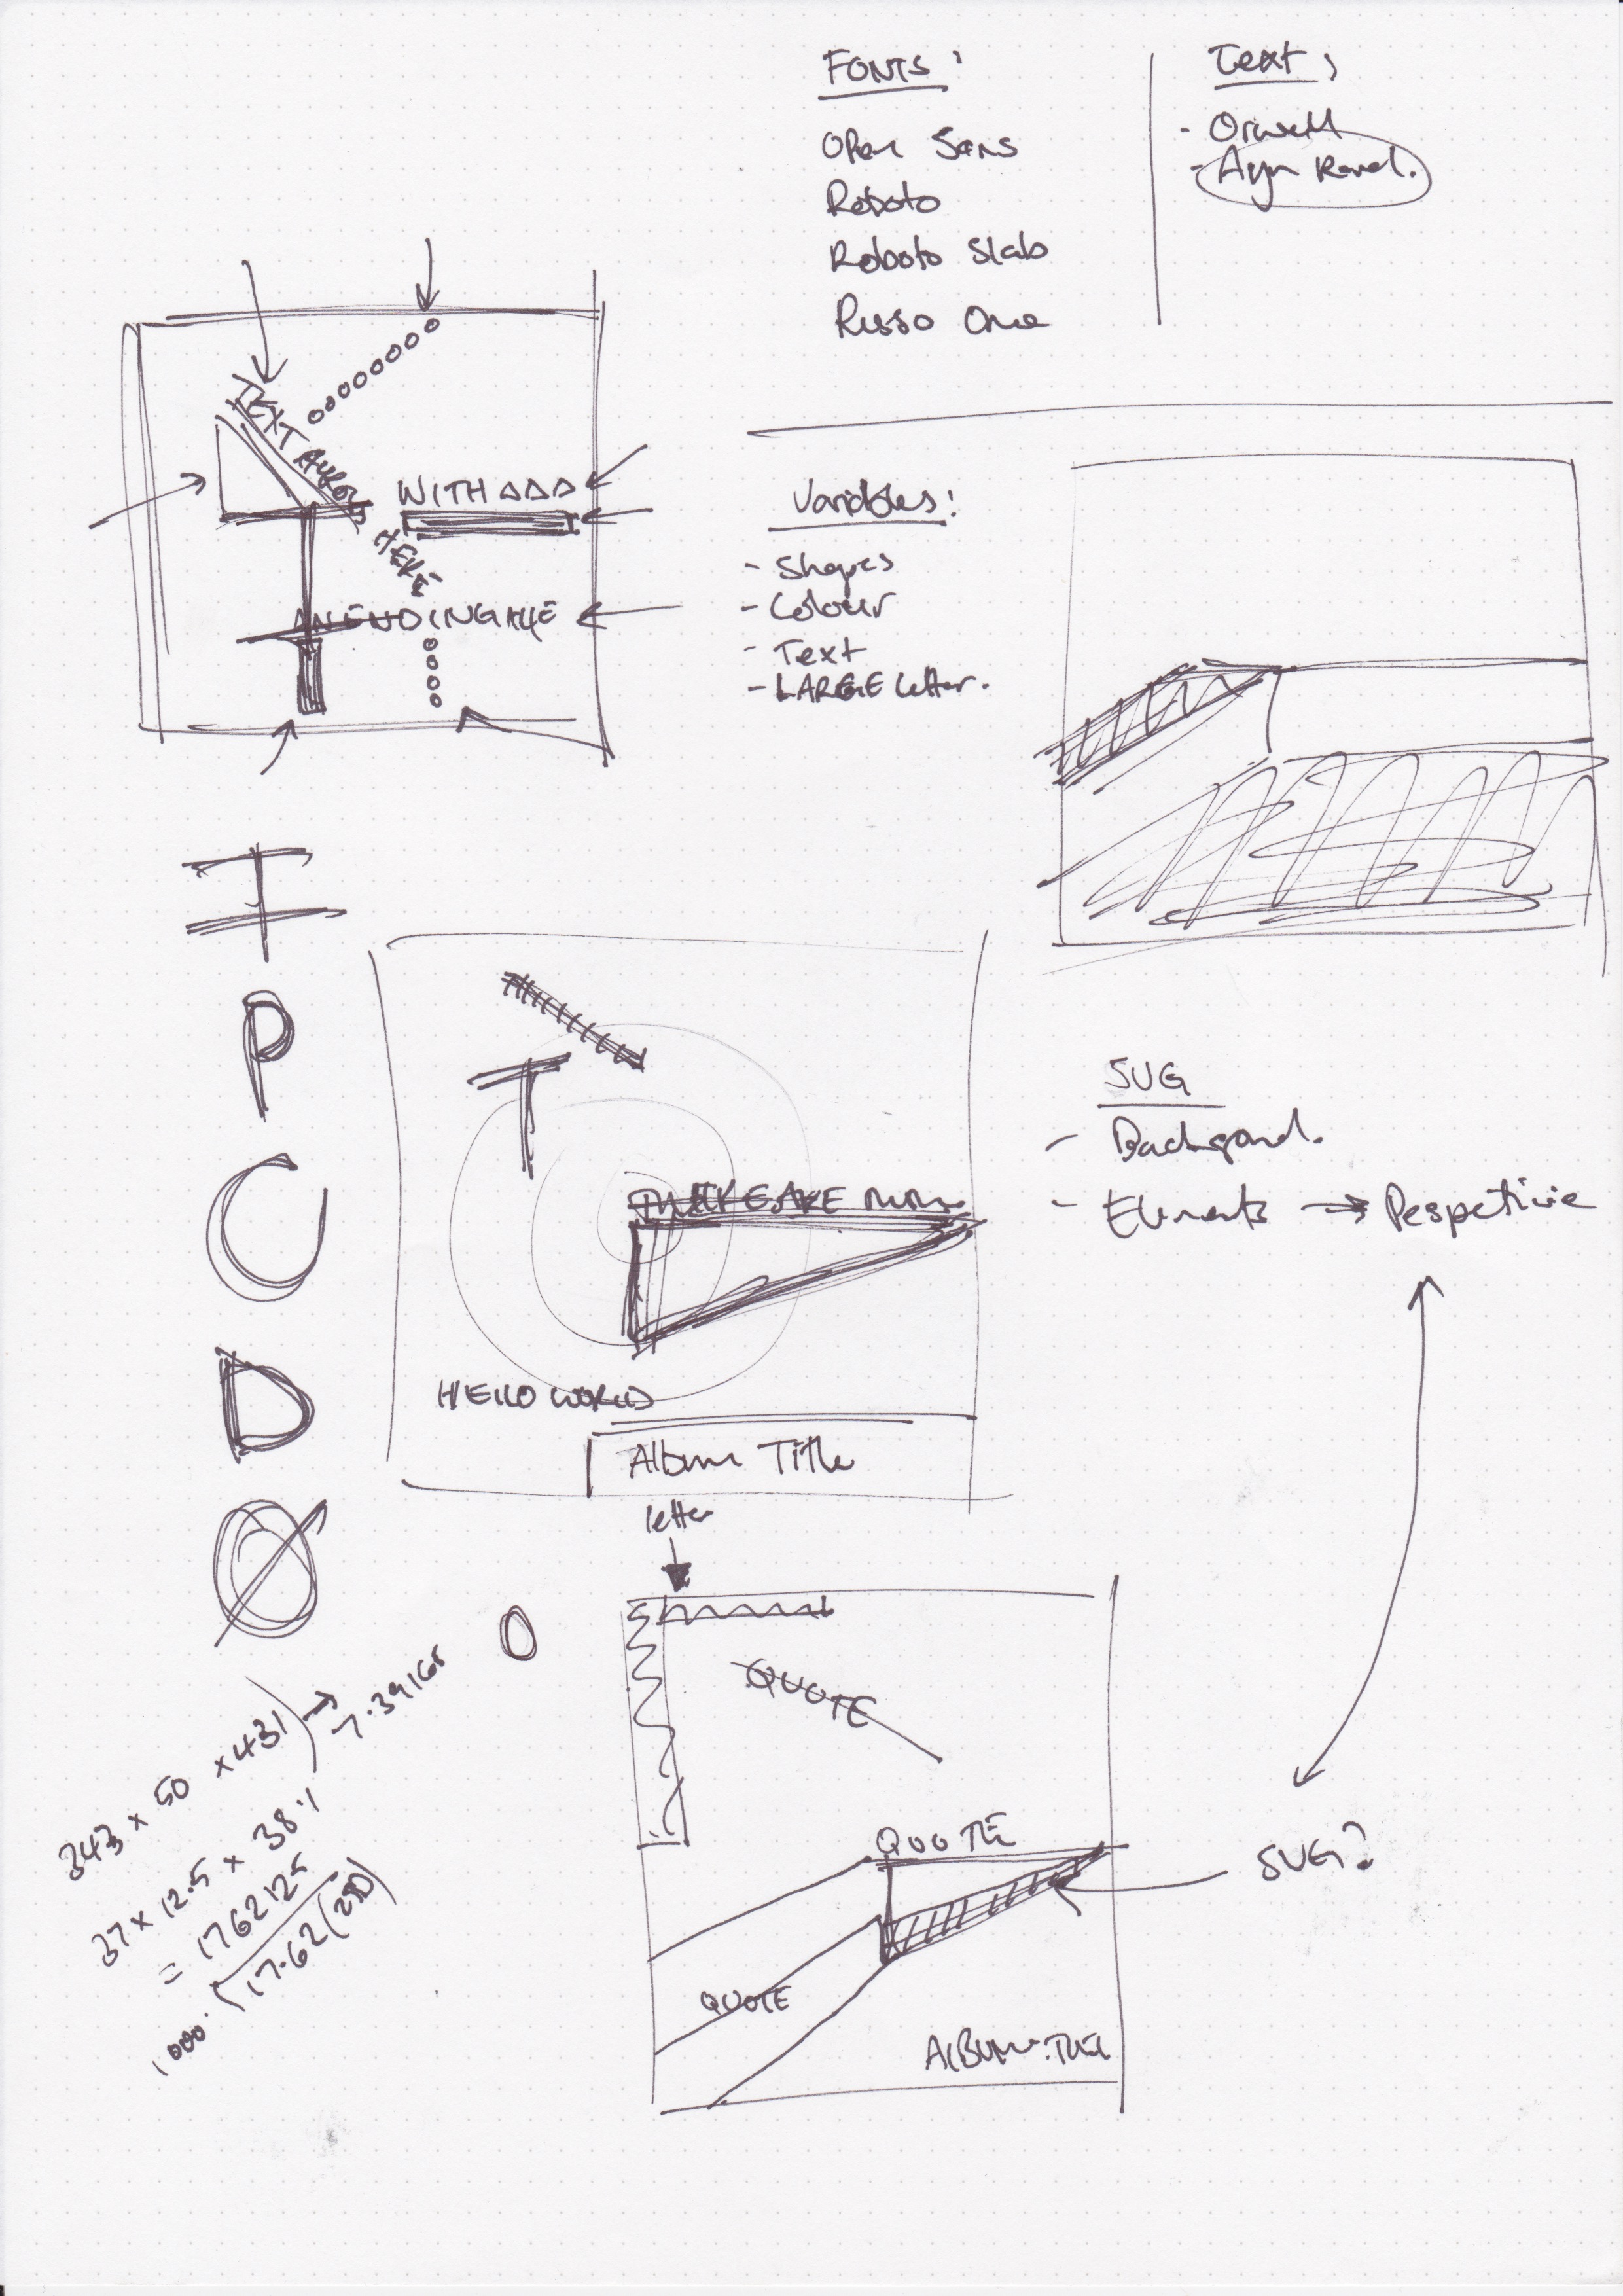 FONTS:
Open Sans
Roboto
Roboto Slab
Russo One
Text:
- Orwell
- Ayn Rand.
TEXT
HERE
WITH
Variables:
- Shapes
- Colour
- Text
- LARGE letter.
I
P
C
D
Ø
T
HELLO WORLD
Album Title
SVG
- Backgrond.
- Elements → Pespective
letter
0
QUOTE
QUOTE
QUOTE
SVG?
343 × 50 × 431) → 7.39165
37 × 12.5 × 381
= 1762125
17.62
1000.